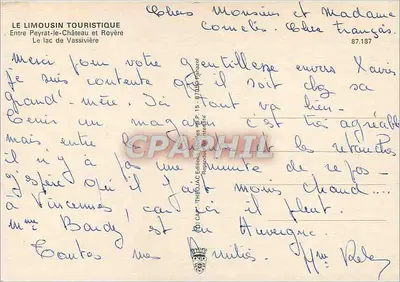 LE LIMOUSIN TOURISTIQUE
Entre Peyrat-le-Château et Royère
Le lac de Vassivière
87.187
Chers Monsieur et Madame
Cornetis. Cher François.
Merci pour votre gentillesse envers Xavier
Je suis contente qu'il soit chez sa
grand'-mère. Ici tout va bien-
Tenir un magasin c'est très agréable
mais entre et les retouches
il n'y a pas une minute de repos-
J'espère qu'il fait moins chaud
à Vincennes, car ici il pleut.
Mme Bardy est en Auvergne.
Toutes mes Amitiés.
CPAPHIL